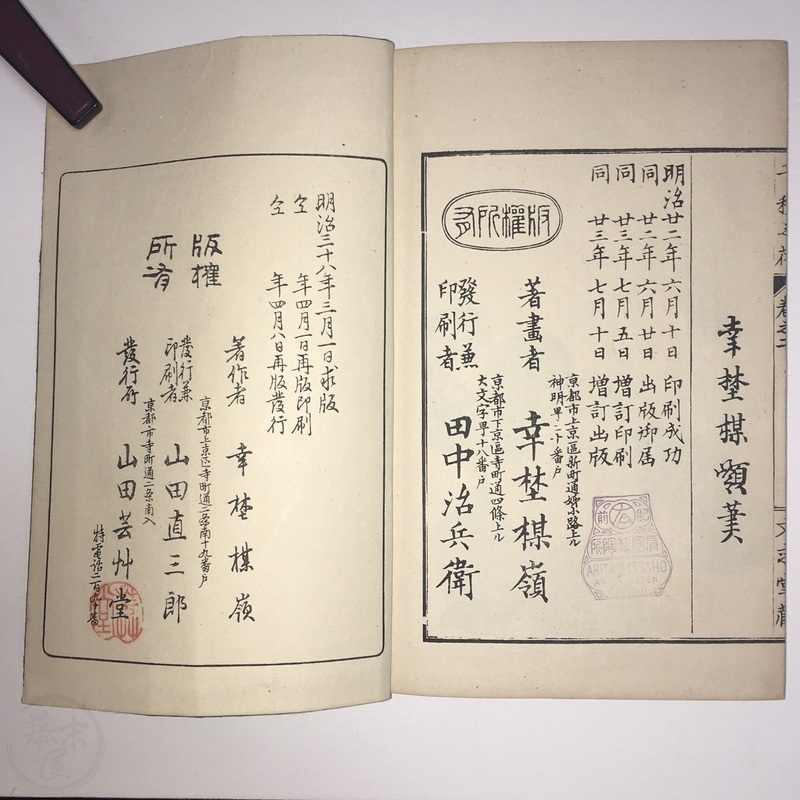 幸埜楳嶺筆
明治廿二年六月十日 印刷成功
同 廿二年六月廿日 出版御届
同 廿三年七月五日 増訂印刷
同 廿三年七月十日 増訂出版
版權所有
京都市上京區新町通
著畫者 幸埜楳嶺
京都市下京區寺町通四條上ル
大文字町十八番戸
發行兼印刷者 田中治兵衛
ARITA
明治三十八年三月一日求版
仝 年四月一日再版印刷
仝 年四月八日再版發行
版權所有
著作者 幸埜楳嶺
京都市上京區寺町通二条南十九番戸
發行兼印刷者 山田直三郎
京都市寺町通二条南入
發行所 山田芸艸堂
特電話二百九十番
幕末屋